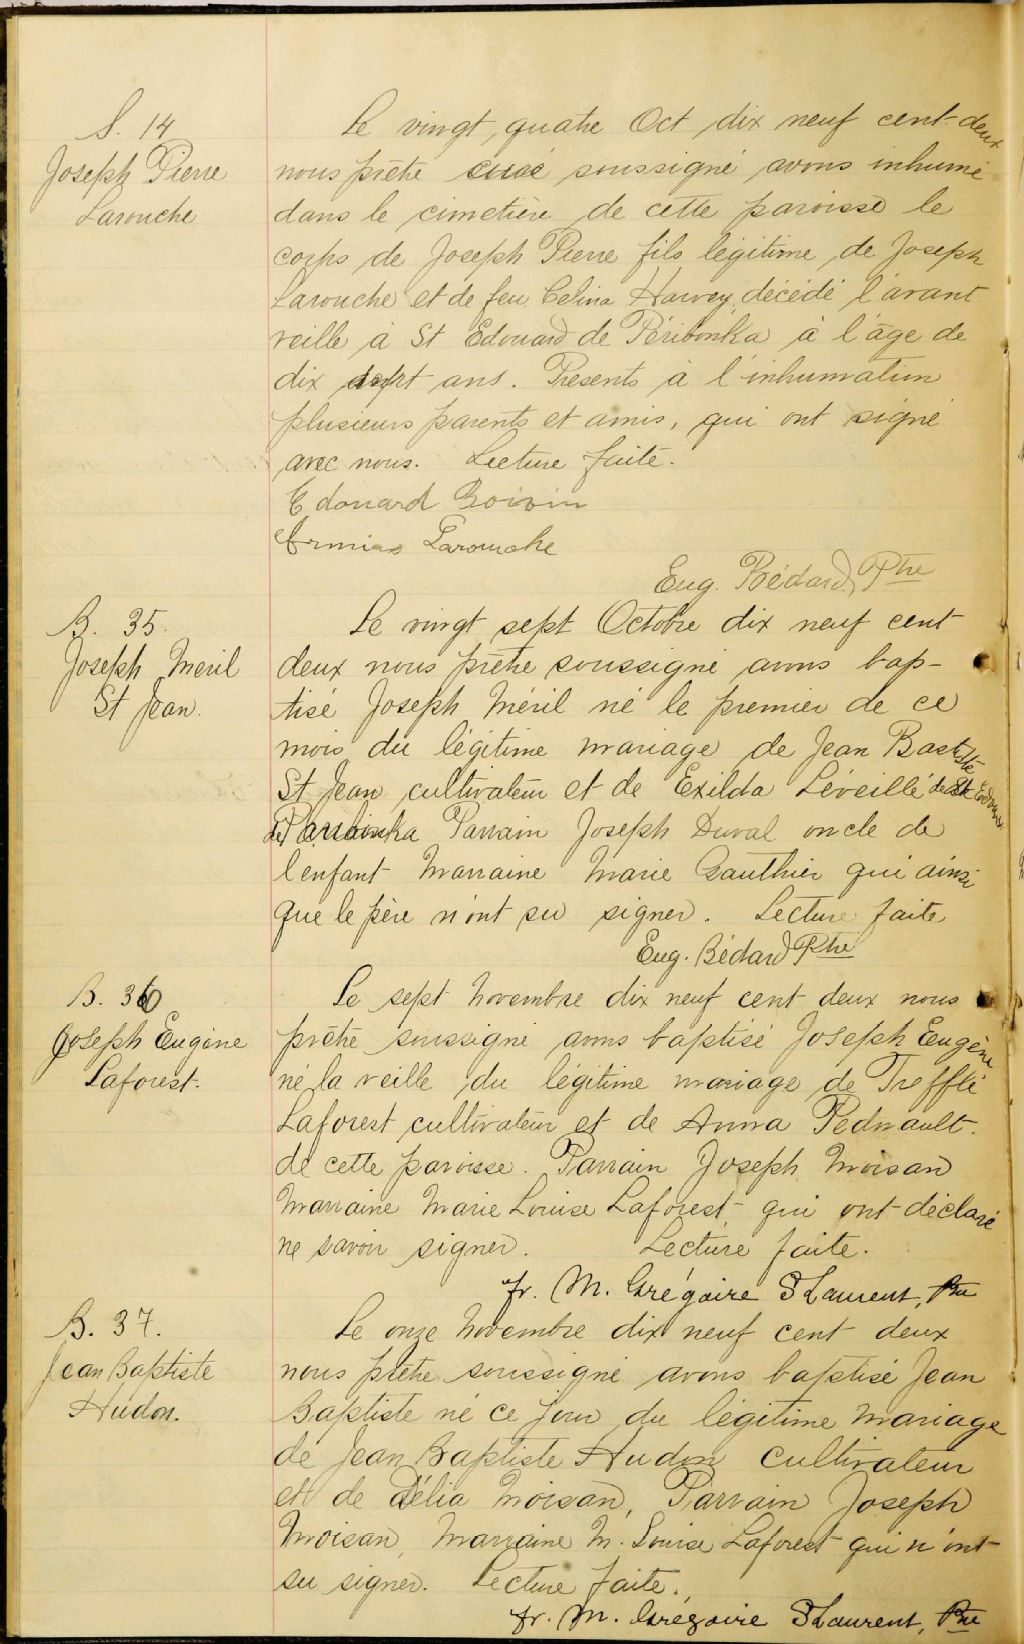 S. 14
Joseph Pierre
Larouche
Le vingt quatre Oct dix neuf cent deux
nous prêtre curé soussigné avons inhumé
dans le cimetière de cette paroisse le
corps de Joseph Pierre fils légitime de Joseph
Larouche et de feu Celina Harvey décédé l'avant
veille à St Edouard de Péribonka à l'âge de
dix sept ans. Présents à l'inhumation
plusieurs parents et amis, qui ont signé
avec nous. Lecture faite.
Edouard Boivin
Larouche
Eug. Bédard, Ptre
B. 35.
Joseph Méril
St Jean.
Le vingt sept Octobre dix neuf cent
deux nous prêtre soussigné avons bap-
tisé Joseph Méril né le premier de ce
mois du légitime mariage de Jean Baptiste
St Jean cultivateur et de Exilda Léveillé de St Edouard
de Parrain Joseph Duval oncle de
l'enfant Marraine Marie Gauthier qui ainsi
que le père n'ont su signer. Lecture faite
Eug. Bédard Ptre
B. 36
Joseph Eugène
Laforest.
Le sept Novembre dix neuf cent deux nous
prêtre soussigné avons baptisé Joseph Eugène
né la veille du légitime mariage de Trefflé
Laforest cultivateur et de Anna Pednault.
de cette paroisse. Parrain Joseph Moisan
Marraine Marie Louise Laforest - qui ont déclaré
ne savoir signer. Lecture faite.
fr. M. Grégoire StLaurent, Ptre
B. 37.
Jean Baptiste
Hudon.
Le onze Novembre dix neuf cent deux
nous prêtre soussigné avons baptisé Jean
Baptiste né ce jour du légitime mariage
de Jean Baptiste Hudon cultivateur
et de Délia Moisan, Parrain Joseph
Moisan, Marraine M. Louise Laforest qui n'ont
su signer. Lecture faite.
fr. M. Grégoire StLaurent, Ptre